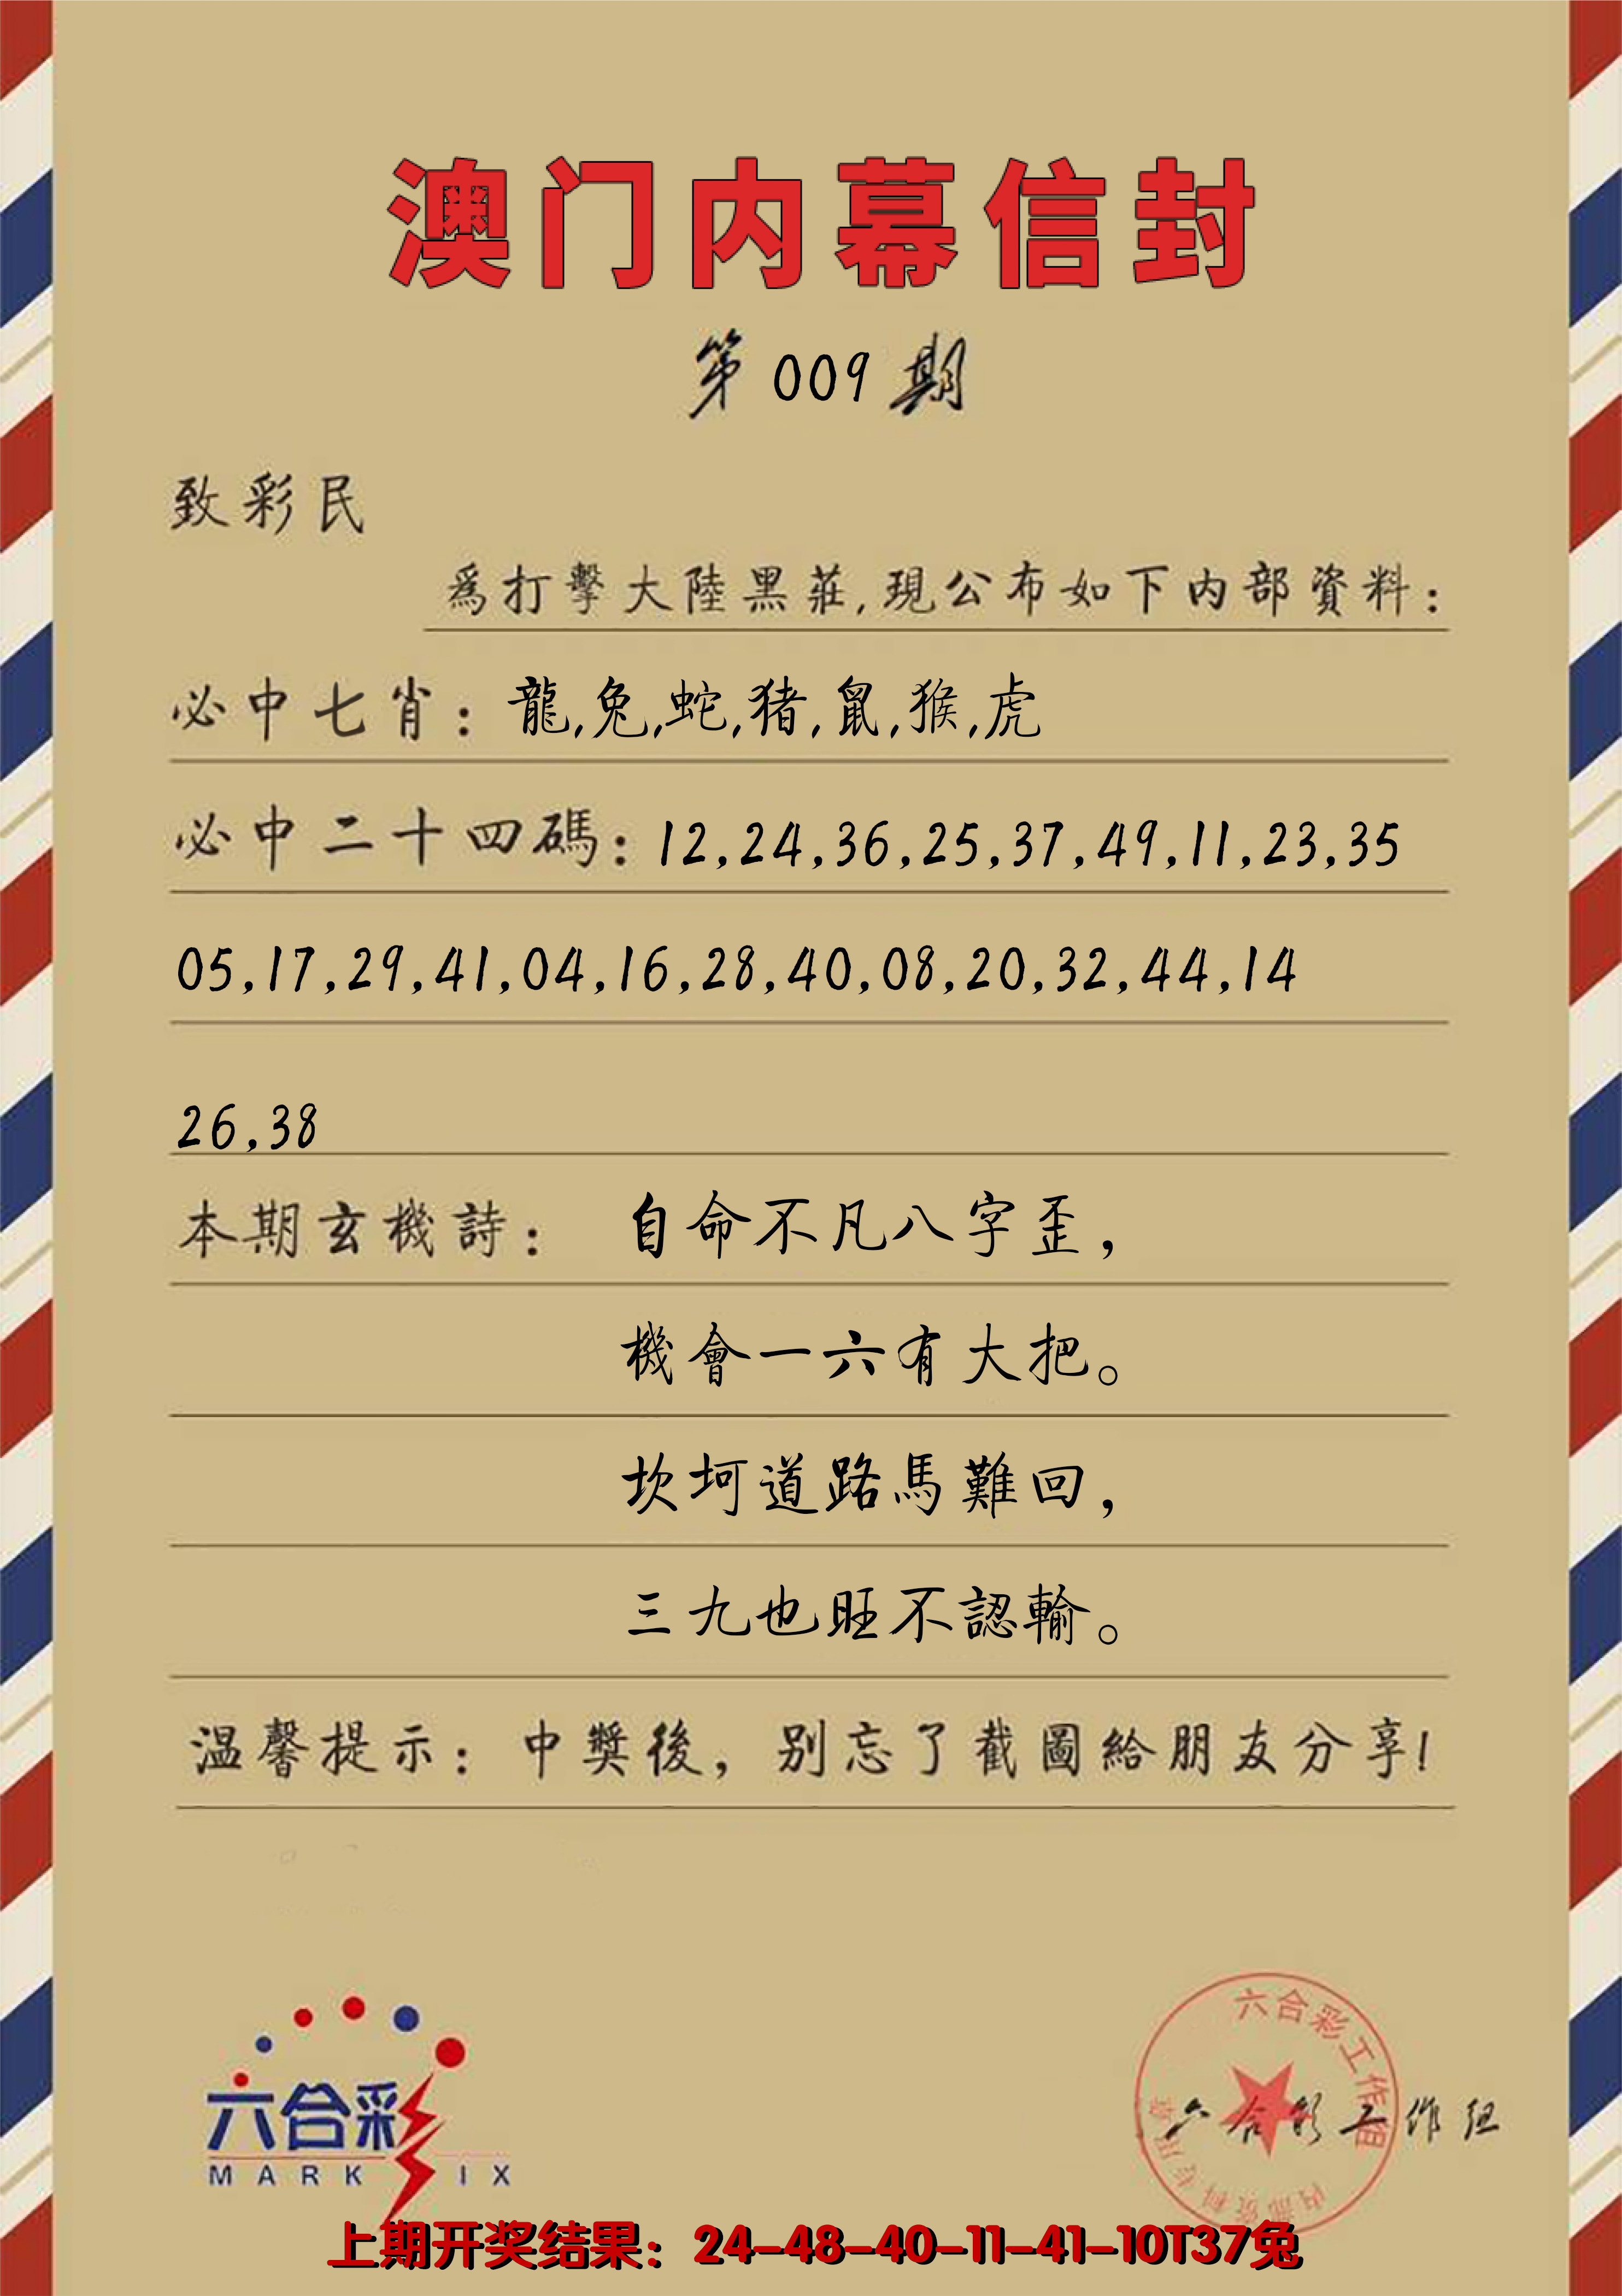 澳门内幕信封
第009期
致彩民
爲打擊大陸黑莊,現公布如下内部資料:
必中七肖:龍,兔,蛇,猪,鼠,猴,虎
必中二十四碼:12,24,36,25,37,49,11,23,35
05,17,29,41,04,16,28,40,08,20,32,44,14
26,38
本期玄機詩: 自命不凡八字歪,
機會一六有大把。
坎坷道路馬難回,
三九也旺不認輸。
温馨提示:中獎後,别忘了截圖給朋友分享!
六合彩
MARK IX
六合彩工作组
内部资料专用章
六合彩工作组
上期开奖结果:24-48-40-11-41-10T37兔